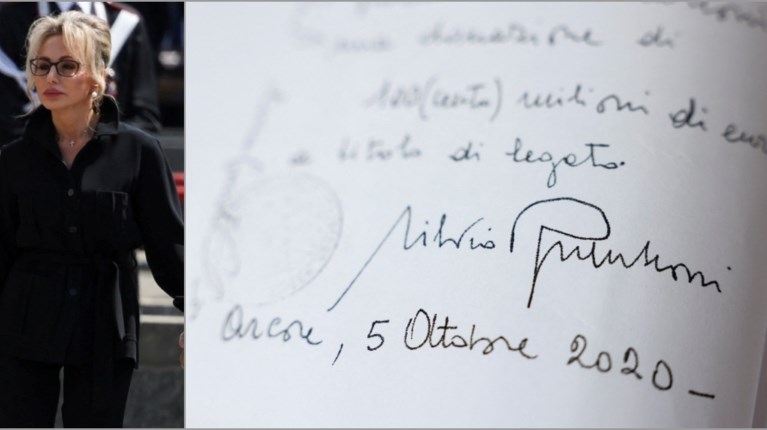 donazione di
100 (cento) milioni di euro
a titolo di legato.
Silvio Berlusconi
Arcore, 5 Ottobre 2020 –